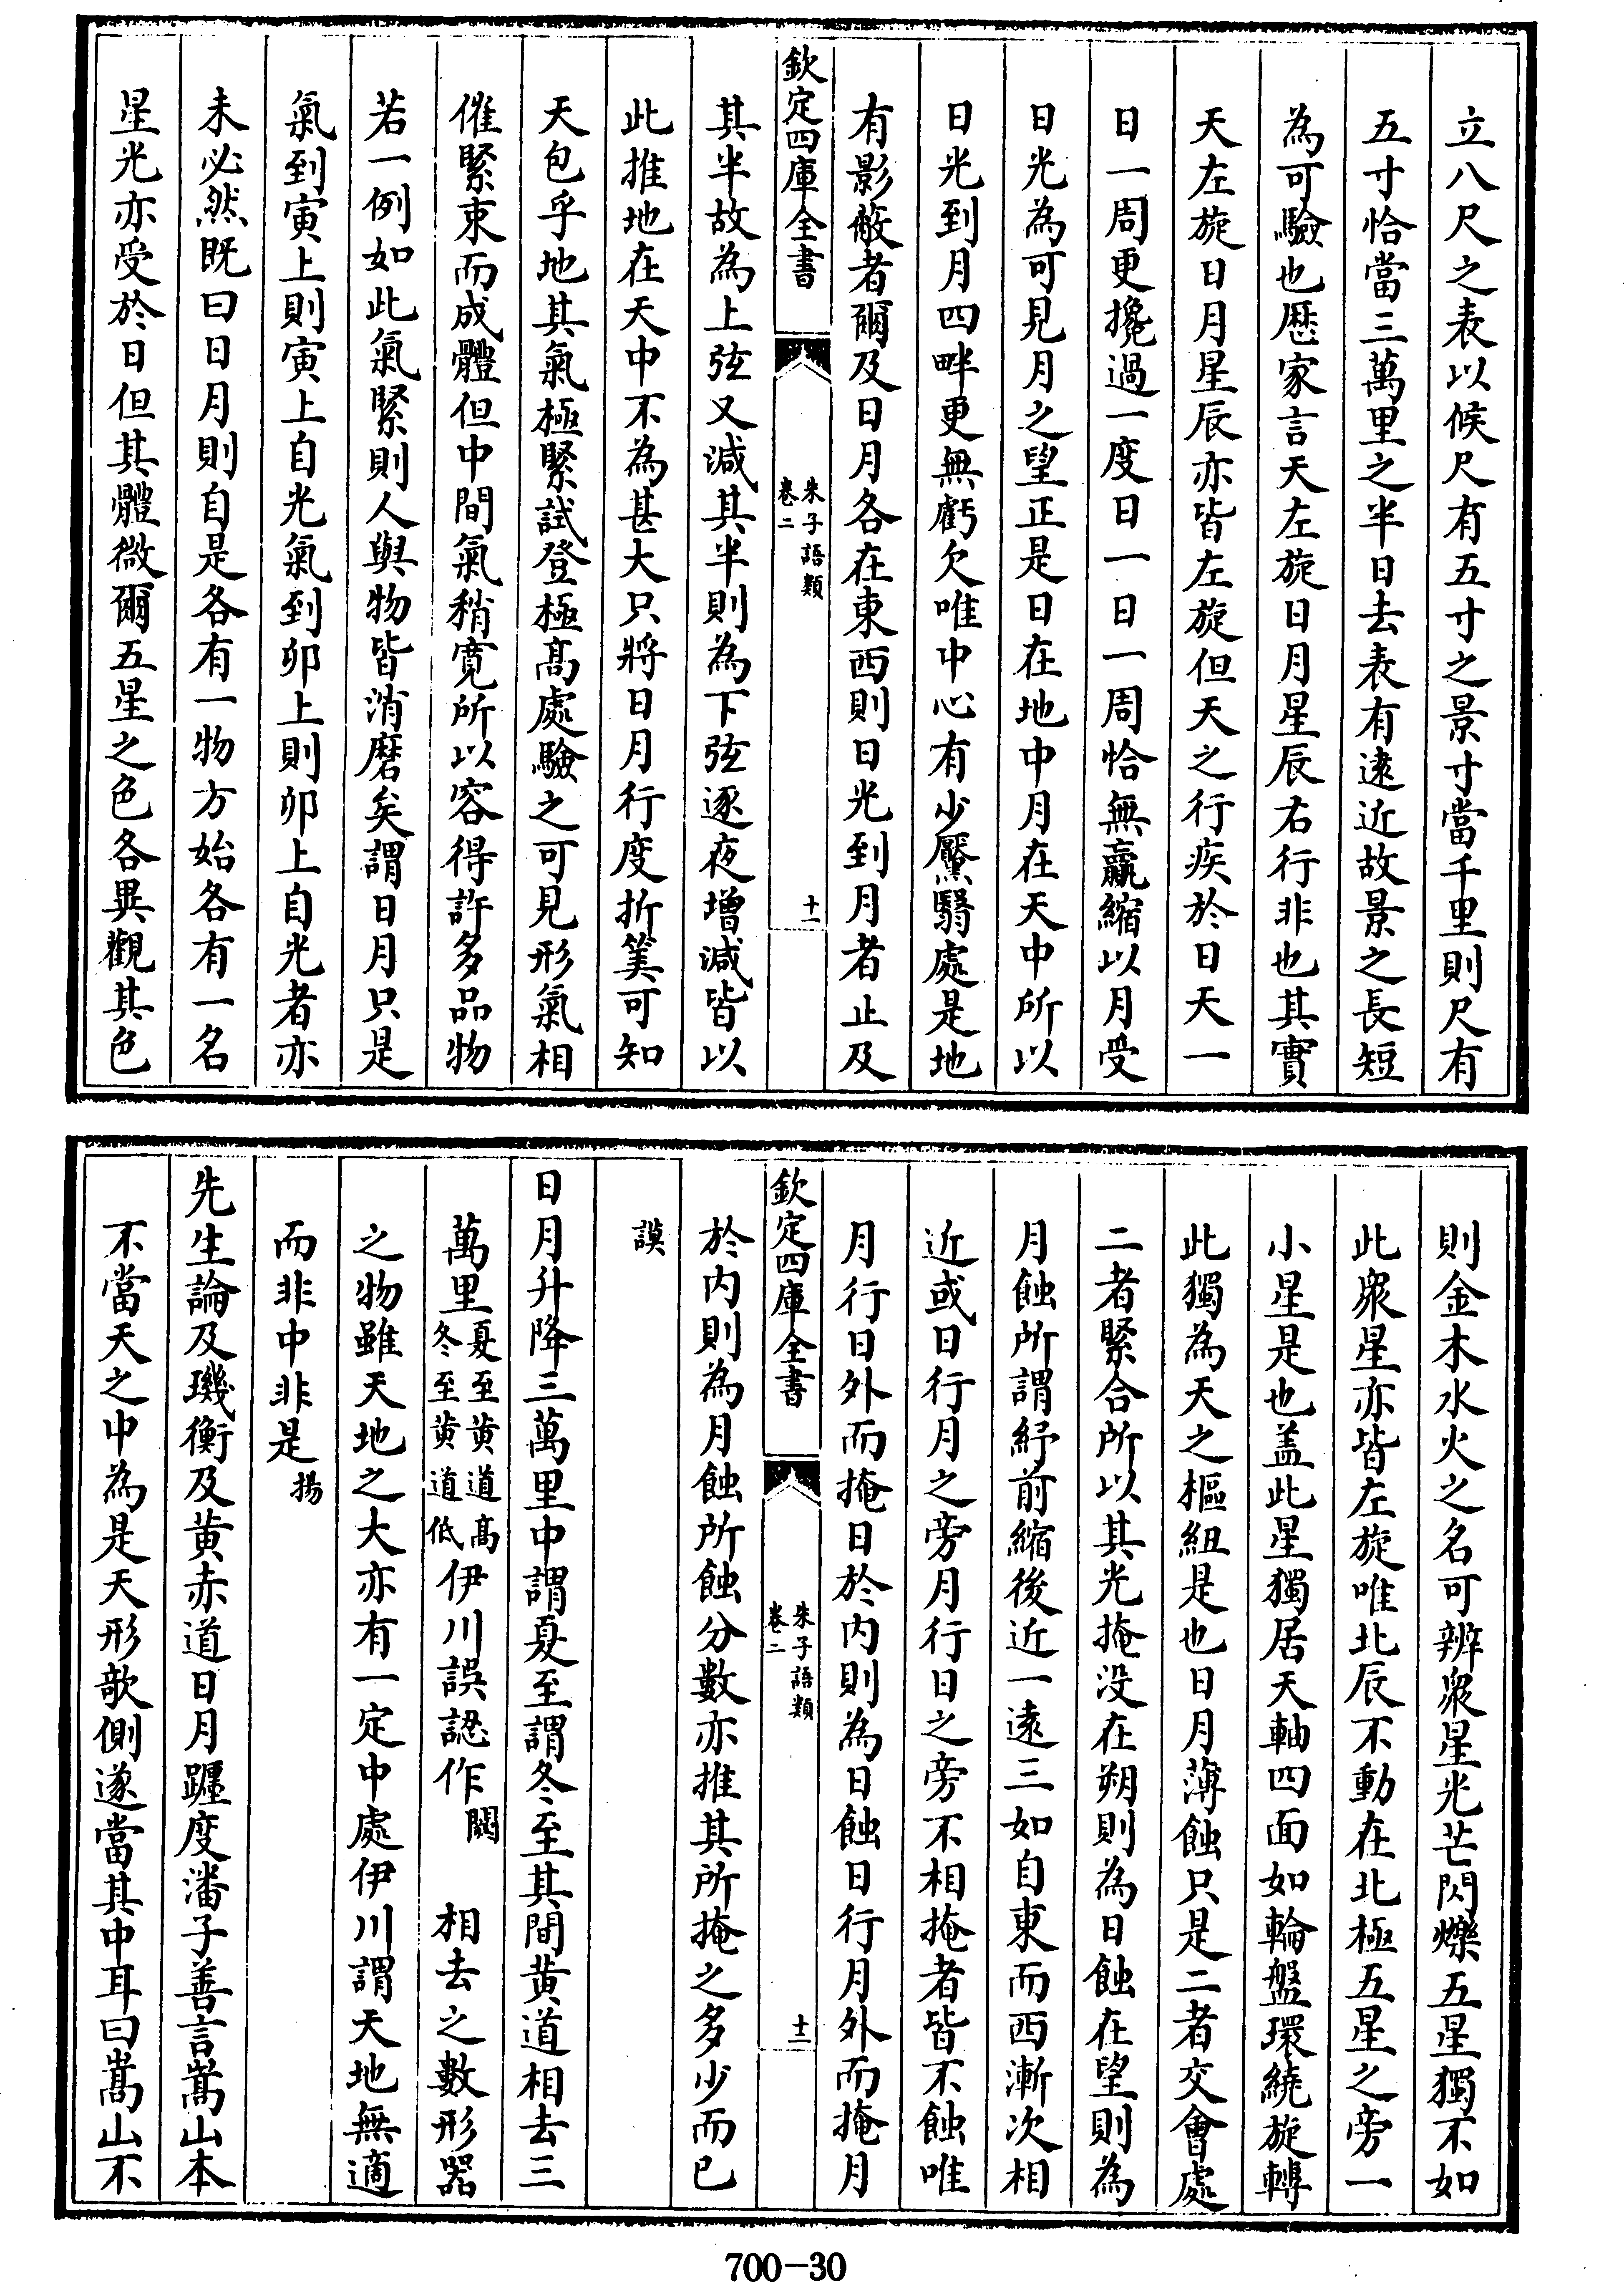 立八尺之表以候尺有五寸之景寸當千里則尺有
五寸恰當三萬里之半日去表有逺近故景之長短
為可驗也厯家言天左旋日月星辰右行非也其實
天左旋日月星辰亦皆左旋但天之行疾於日天一
日一周更攙過一度日一日一周恰無贏縮以月受
日光為可見月之望正是日在地中月在天中所以
日光到月四畔更無虧欠唯中心有少黶翳處是地
有影蔽者爾及日月各在東西則日光到月者止及
欽定四庫全書
朱子語類
卷二
十一
其半故為上弦又減其半則為下弦逐夜增減皆以
此推地在天中不為甚大只將日月行度折筭可知
天包乎地其氣極緊試登極髙處驗之可見形氣相
催緊束而成體但中間氣稍寛所以容得許多品物
若一例如此氣緊則人與物皆消磨矣謂日月只是
氣到寅上則寅上自光氣到卯上則卯上自光者亦
未必然既曰日月則自是各有一物方始各有一名
星光亦受於日但其體微爾五星之色各異觀其色
則金木水火之名可辨衆星光芒閃爍五星獨不如
此衆星亦皆左旋唯北辰不動在北極五星之旁一
小星是也盖此星獨居天軸四面如輪盤環繞旋轉
此獨為天之樞紐是也日月薄蝕只是二者交會處
二者緊合所以其光掩没在朔則為日蝕在望則為
月蝕所謂紓前縮後近一逺三如自東而西漸次相
近或日行月之旁月行日之旁不相掩者皆不蝕唯
月行日外而掩日於内則為日蝕日行月外而掩月
欽定四庫全書
朱子語類
卷二
十二
於内則為月蝕所蝕分數亦推其所掩之多少而已
謨
日月升降三萬里中謂夏至謂冬至其間黄道相去三
萬里夏至黄道髙冬至黄道低伊川誤認作闕 相去之數形器
之物雖天地之大亦有一定中處伊川謂天地無適
而非中非是揚
先生論及璣衡及黄赤道日月躔度潘子善言嵩山本
不當天之中為是天形欹側遂當其中耳曰嵩山不
700-30